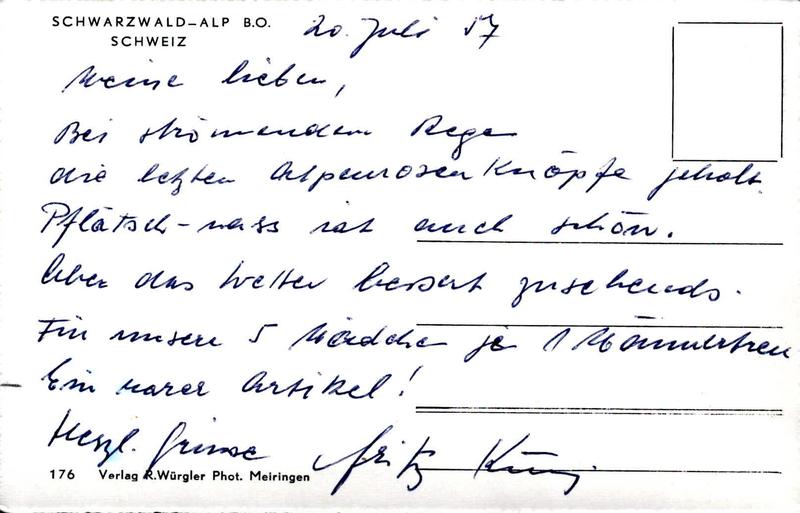 SCHWARZWALD–ALP B.O.
SCHWEIZ
20. Juli 57
Meine lieben,
Bei strömendem Regen
die letzten Alpenrosen Knöpfe geholt.
Pflätsch-nass ist auch schön.
Aber das Wetter bessert zusehends.
Für unsere 5 Mädchen je 1 Männertreu
Ein rarer Artikel!
Herzl. Grüsse Fritz
176 Verlag R.Würgler Phot. Meiringen